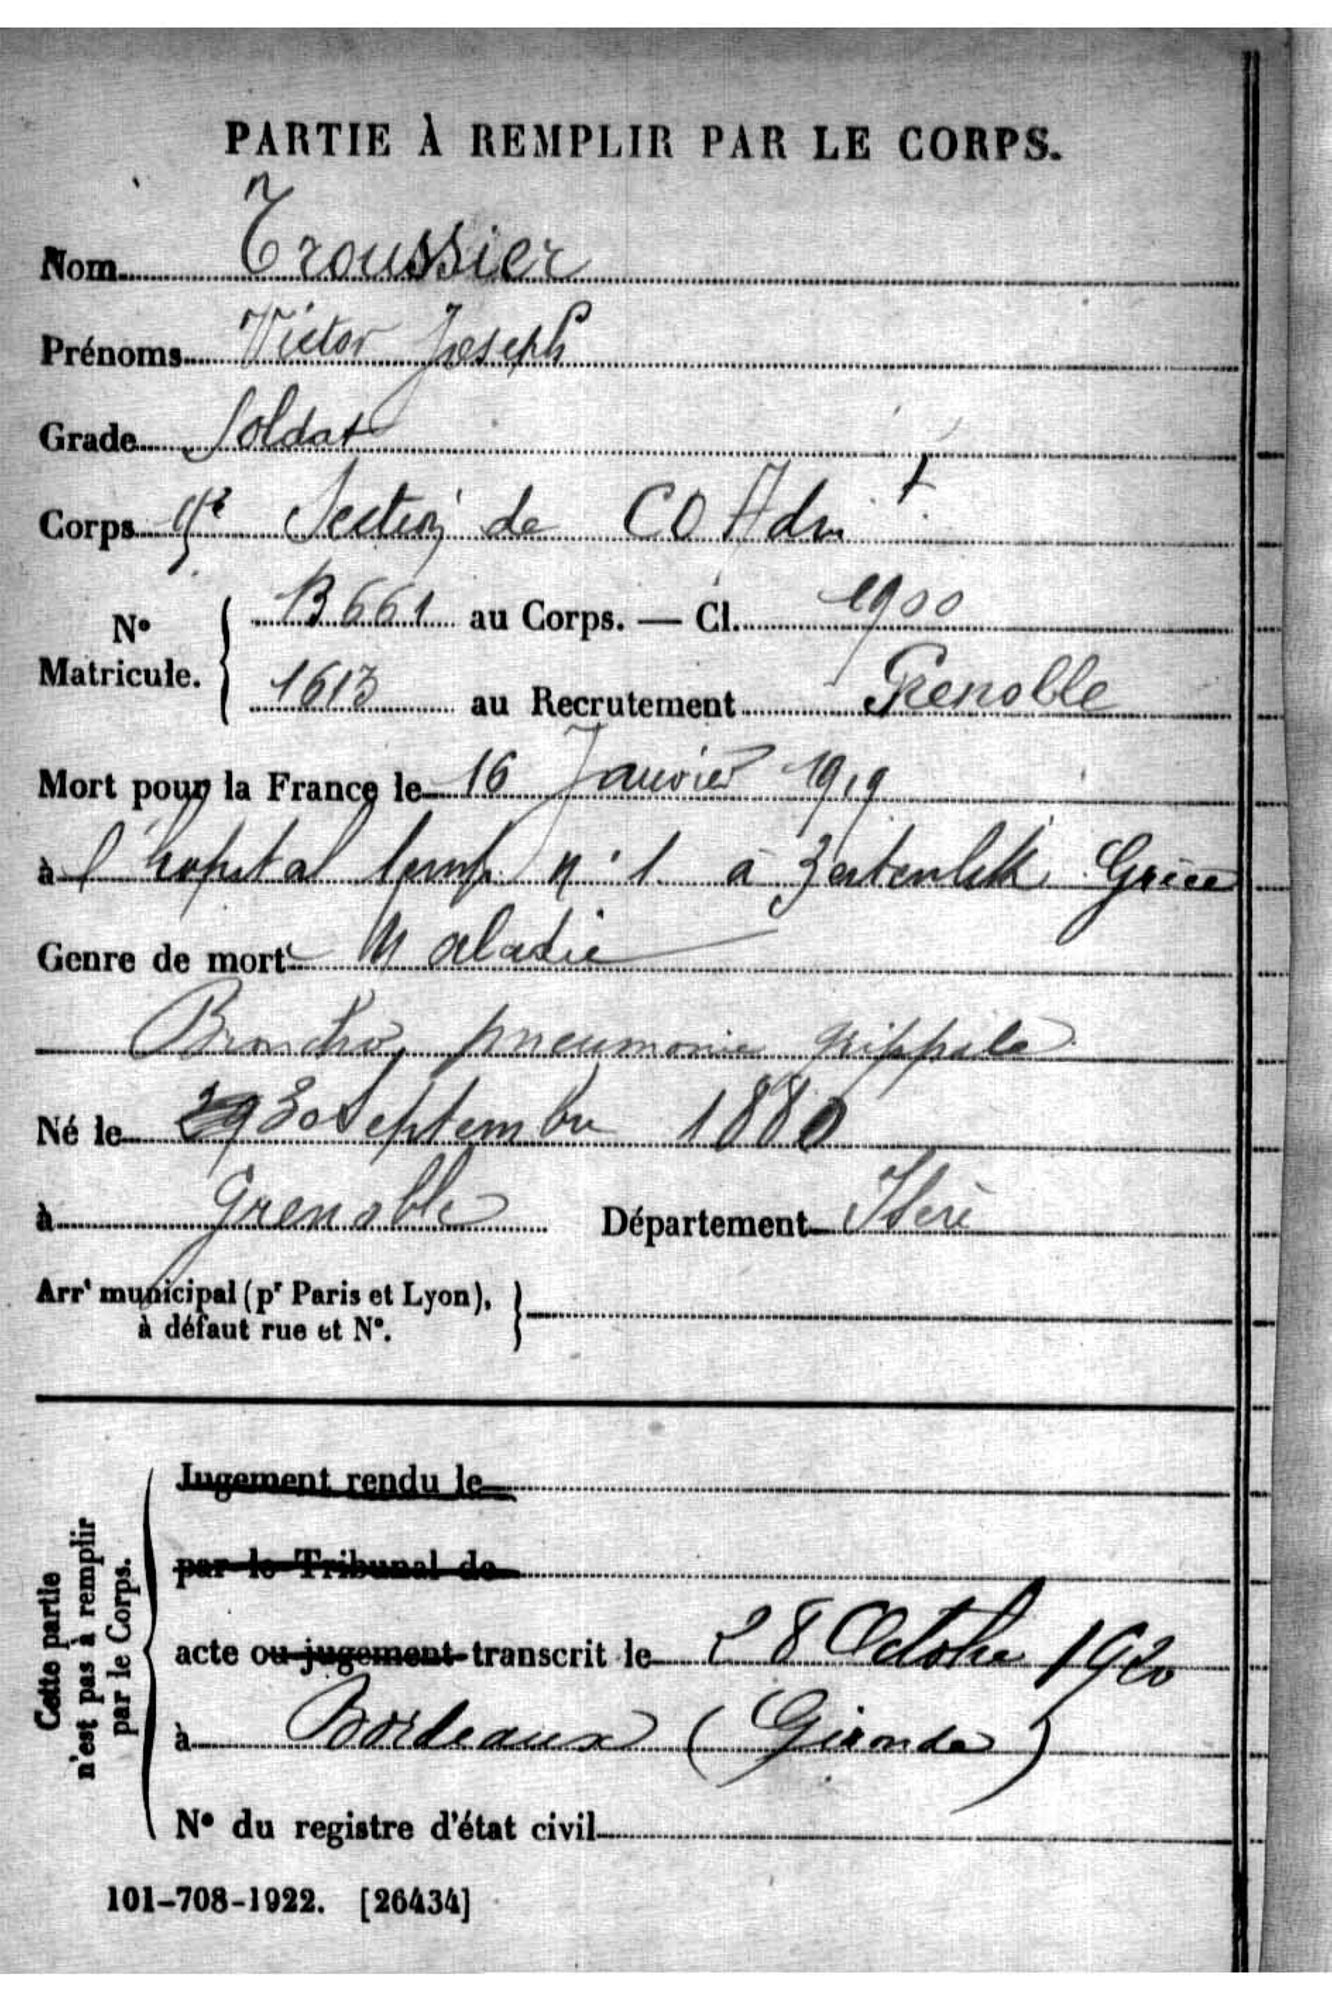 PARTIE À REMPLIR PAR LE CORPS.
Nom Troussier
Prénoms Victor Joseph
Grade Soldat
Corps Section de C O Adm t
N° Matricule. 13661 au Corps. — Cl. 1900
1613 au Recrutement Grenoble
Mort pour la France le 16 Janvier 1919
à l'hopital temp. n° 1 à Zeitenlik Grèce
Genre de mort Maladie
Broncho pneumonie grippale
Né le 30 Septembre 1880
à Grenoble Département Isère
Arrt municipal (pr Paris et Lyon),
à défaut rue et N°.
Cette partie
n'est pas à remplir
par le Corps.
Jugement rendu le
par le Tribunal de
acte ou jugement transcrit le 28 Octobre 1920
à Bordeaux (Gironde)
N° du registre d'état civil
101-708-1922. [26434]